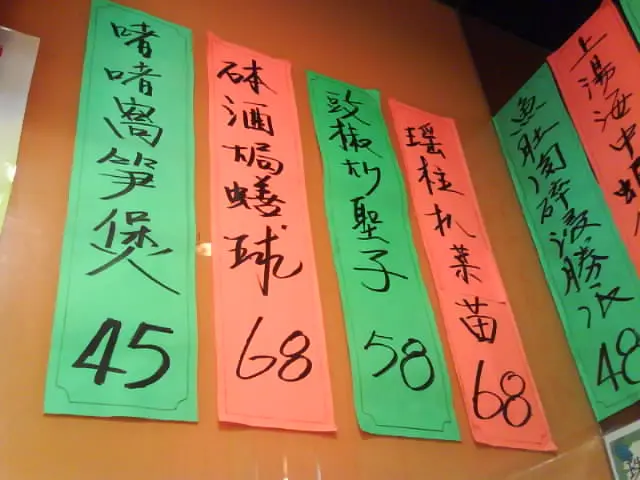 啫啫窩笋煲
45
砵酒焗蟮球
68
豉椒炒聖子
58
瑶柱扒菜苗
68
魚肚
勝瓜
48
上湯海中蝦